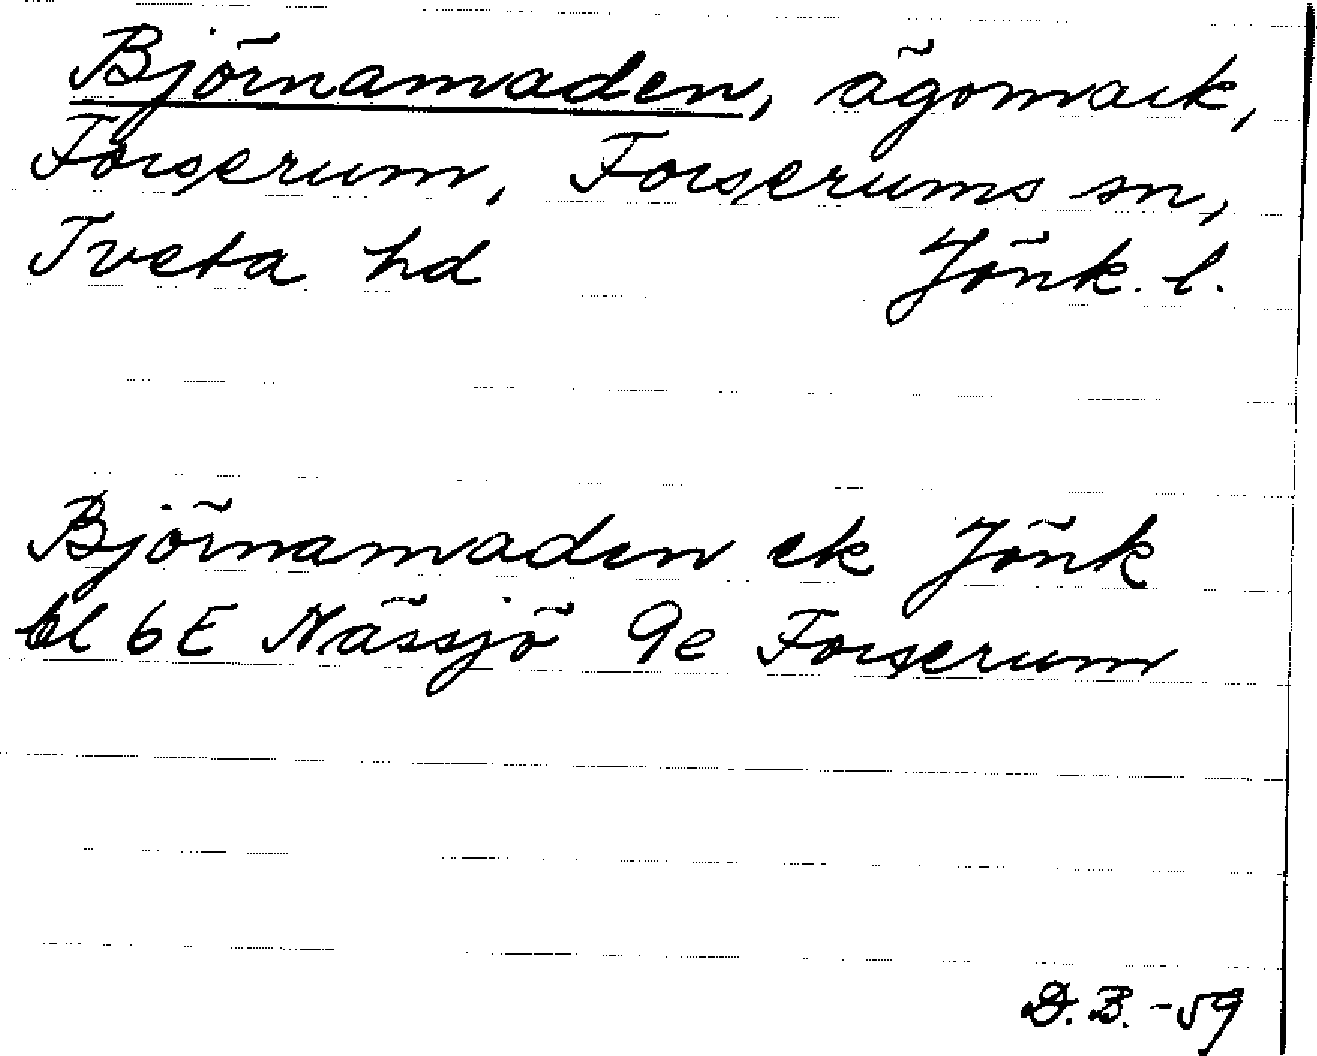 Björnamaden, ägomark,
Forserum, Forserums sn,
Tveta hd Jönk. l.
Björnamaden ek Jönk
bl 6E Nässjö 9e Forserum
D.B. -59